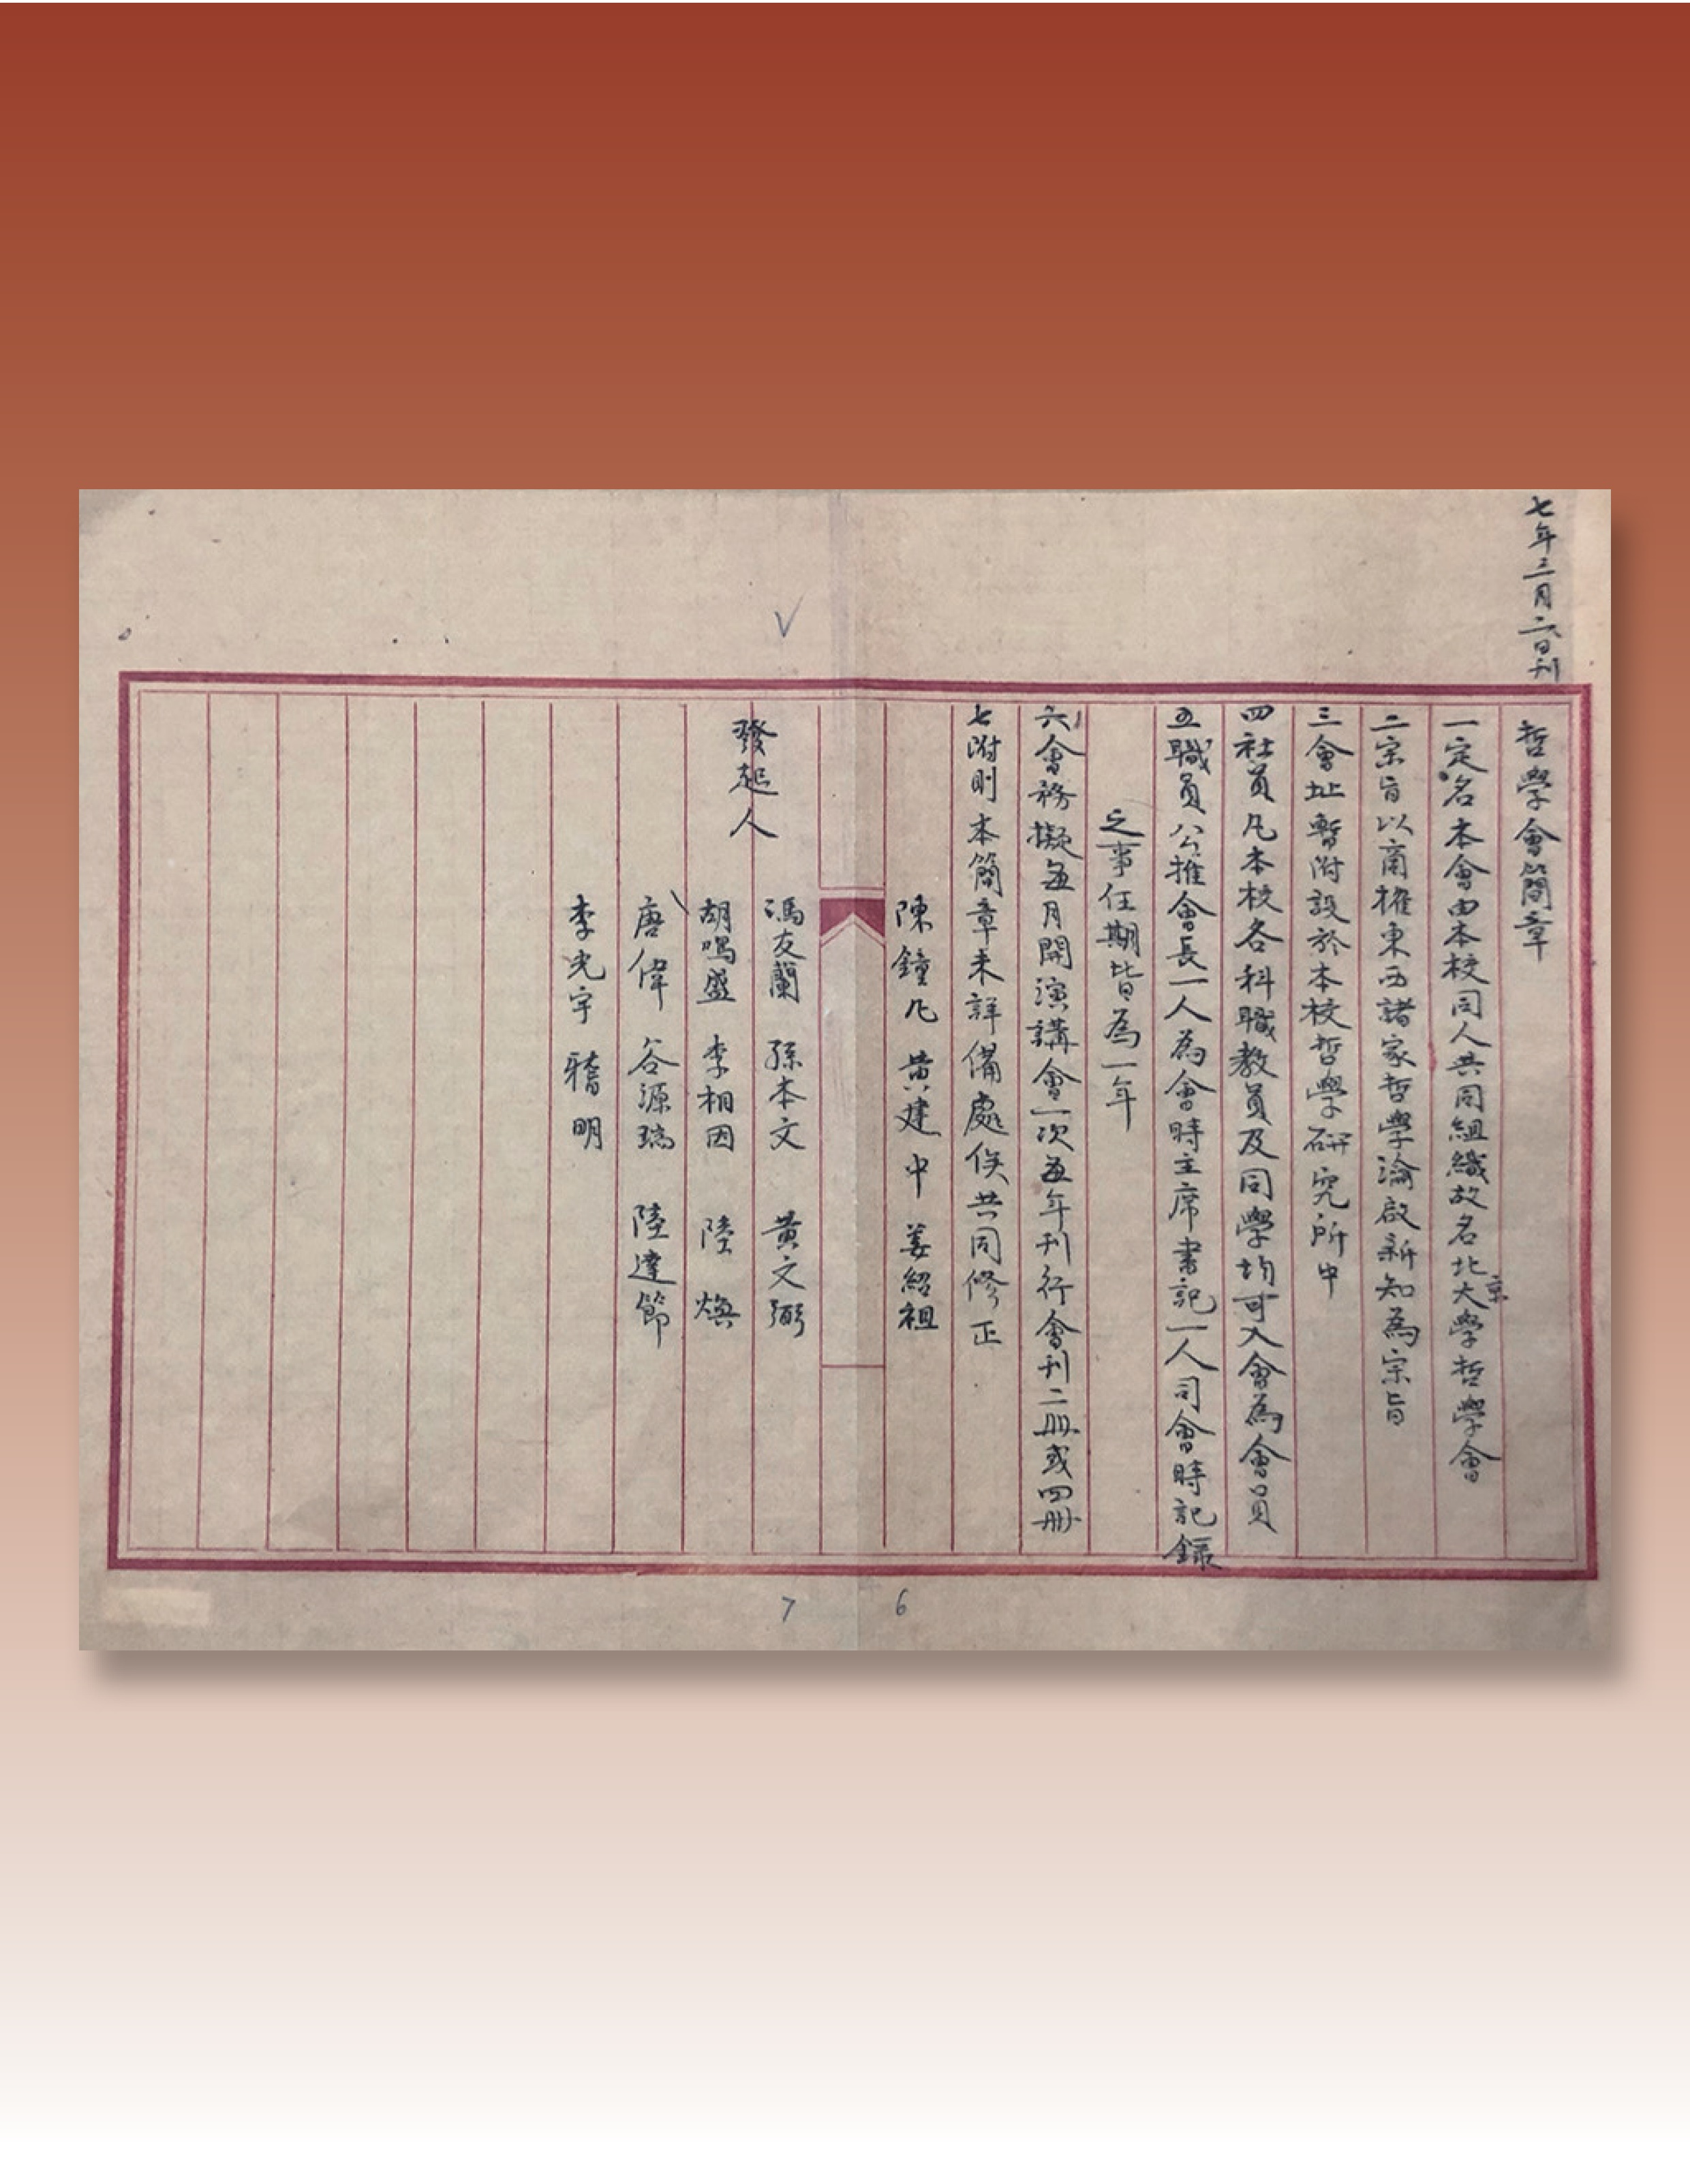 七年三月六日刊
哲學會簡章
一定名本會由本校同人共同組織故名北京大學哲學會
二宗旨以商榷東西諸家哲學瀹啟新知為宗旨
三會址暫附設於本校哲學研究所中
四社員凡本校各科職教員及同學均可入會為會員
五職員公推會長一人為會時主席書記一人司會時記錄
之事任期皆為一年
六會務擬每月開演講會一次每年刊行會刊二冊或四冊
七附則本簡章未詳備處俟共同修正
陳鐘凡 黃建中 姜紹祖
發起人
馮友蘭 孫本文 黃文弼
胡鳴盛 李相因 陸煥
唐偉 谷源瑞 陸達節
李光宇 嵇明
6
7